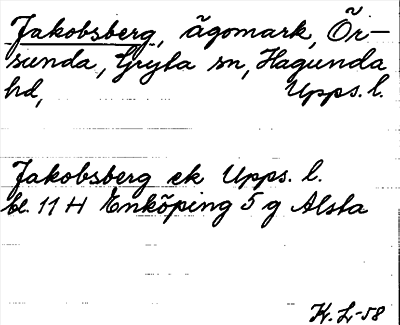 Jakobsberg, ägomark, Ör-
sunda, Gryta sn, Hagunda
hd, Upps. l.
Jakobsberg ek Upps. l.
bl. 11 H Enköping 5 g Alsta
K. L-58